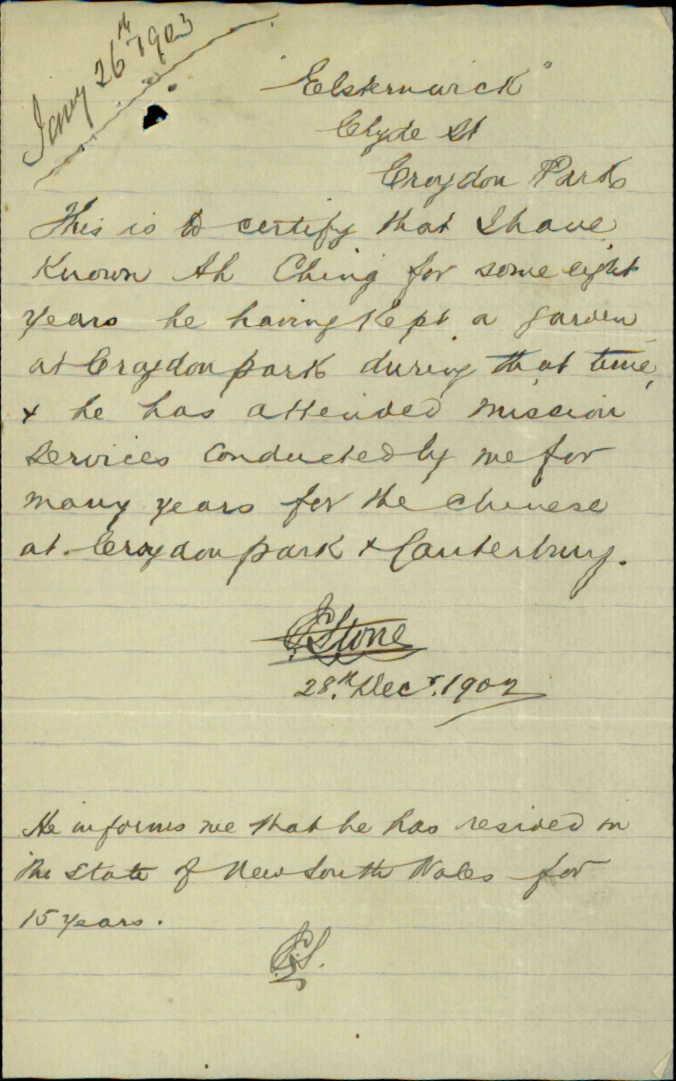 Jany 26th 1903
"Elsternwick"
Clyde St
Croydon Park
This is to certify that I have
known Ah Ching for some eight
years he having kept a garden
at Croydon park during that time,
& he has attended mission
services conducted by me for
many years for the Chinese
at Croydon park & Canterbury.
Stone
28th Decr. 1902
He informs me that he has resided in
the State of New South Wales for
15 years.
S.